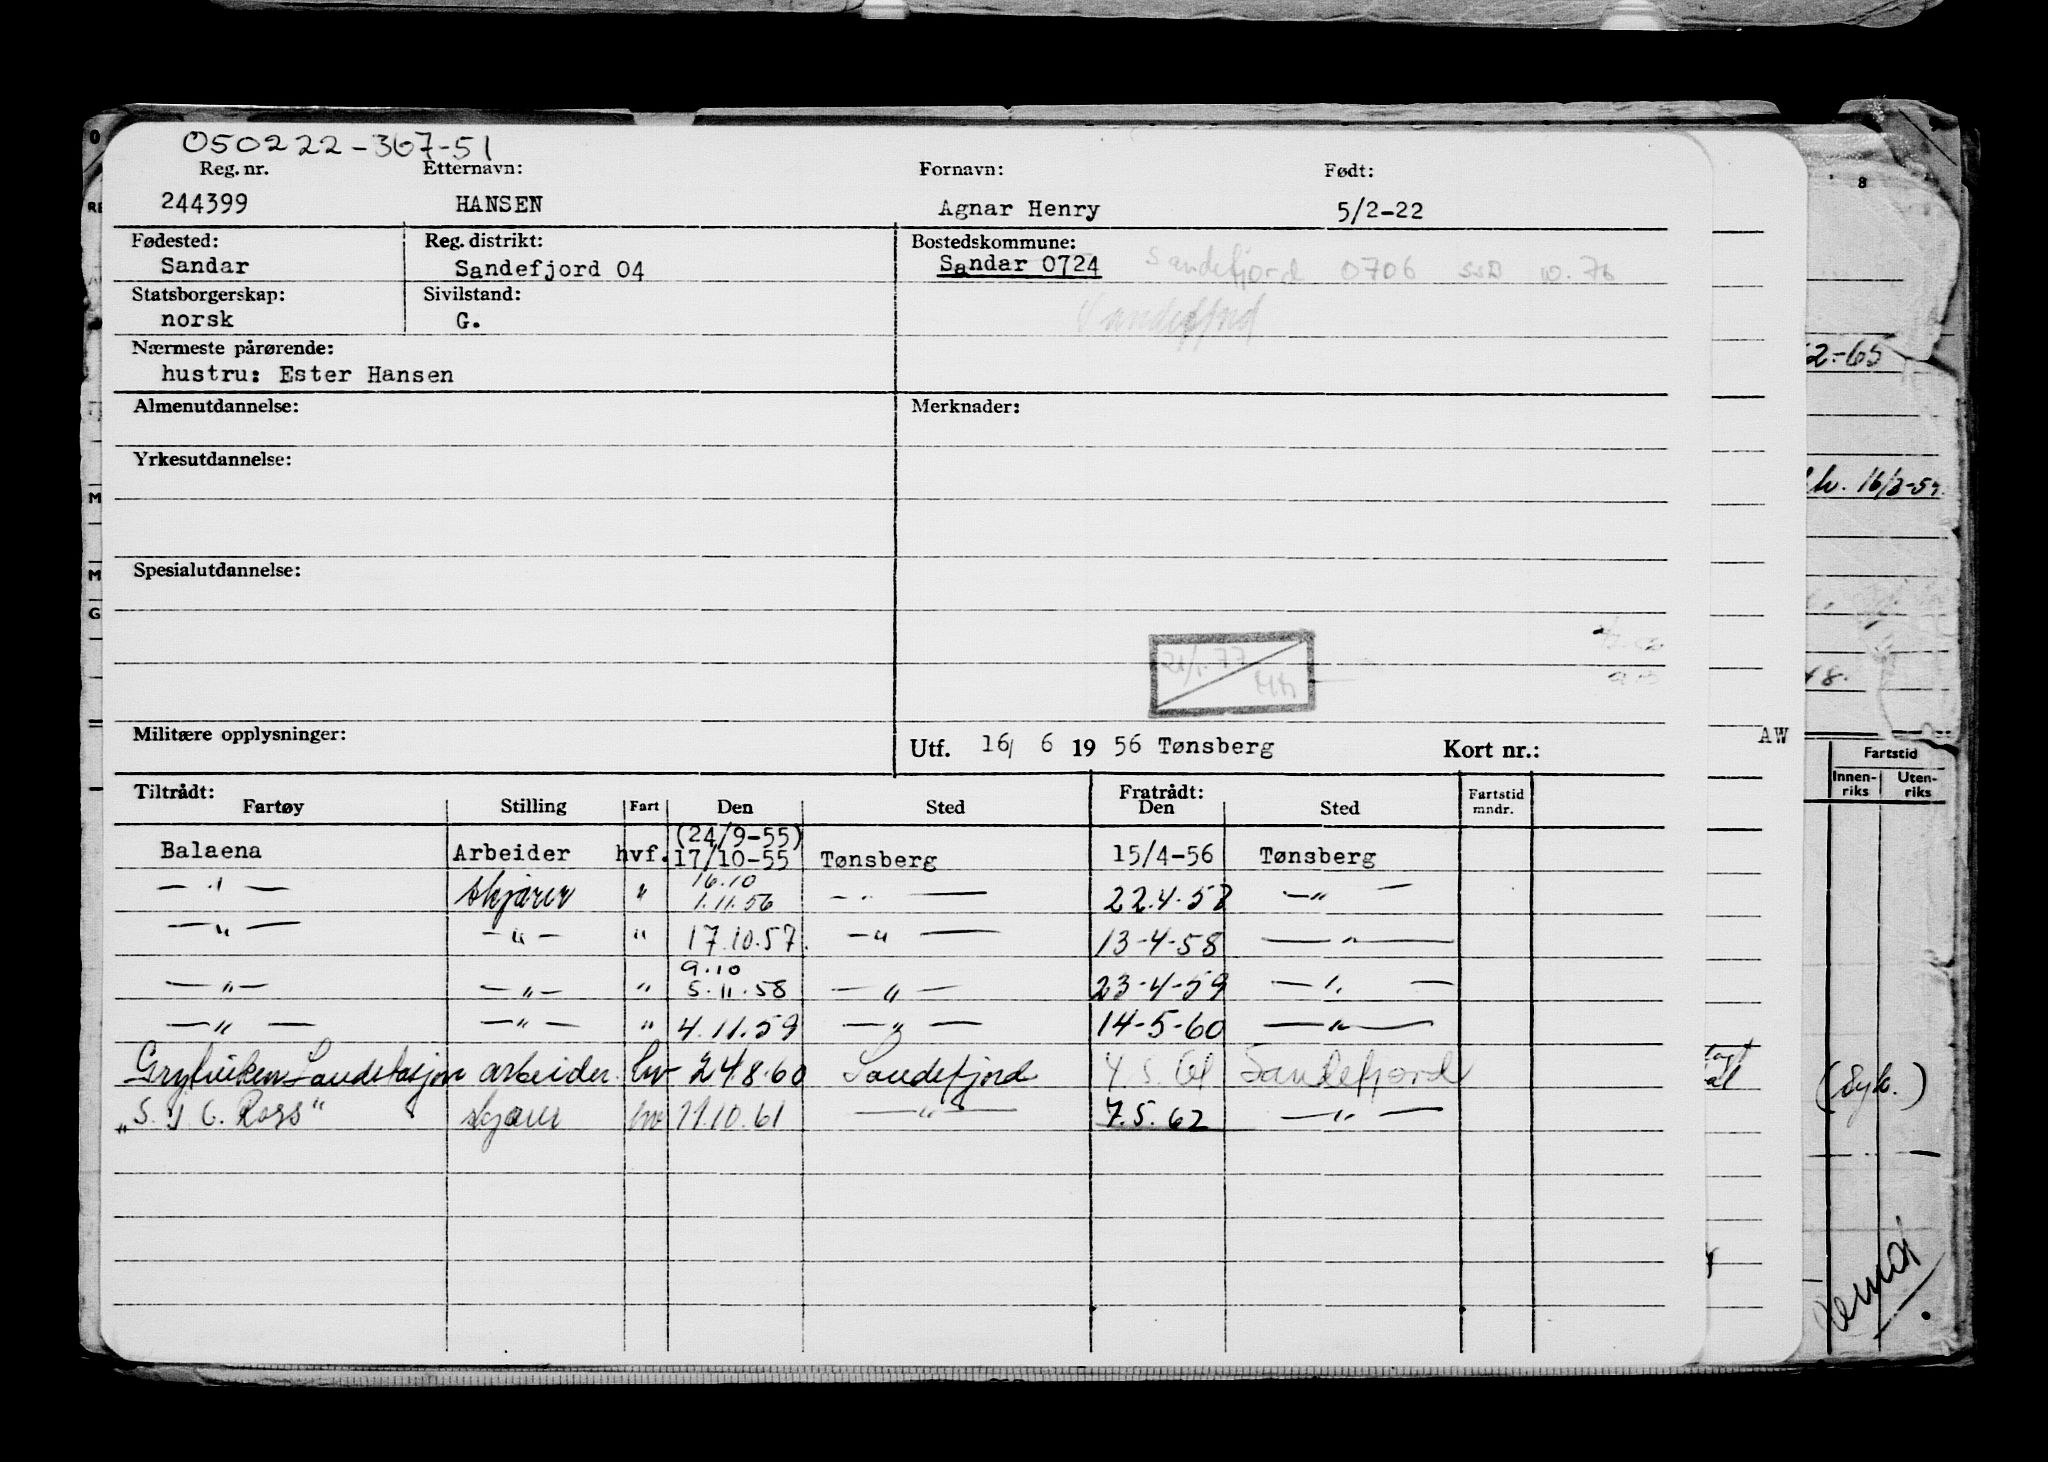 050222-367-51
Reg. nr. Etternavn: Fornavn: Født:
244399 HANSEN Agnar Henry 5/2-22
Fødested: Reg. distrikt: Bostedskommune:
Sandar Sandefjord 04 Sandar 0724 Sandefjord 0706 SSB 10.76
Statsborgerskap: Sivilstand:
norsk G. Sandefjord
Nærmeste pårørende:
hustru: Ester Hansen
Almenutdannelse: Merknader:
Yrkesutdannelse:
Spesialutdannelse:
Militære opplysninger: Utf. 16/ 6 19 56 Tønsberg Kort nr.:
AW
Tiltrådt: Fratrådt: Fartstid
Fartøy Stilling Fart Den Sted Den Sted mndr.
(24/9-55)
Balaena Arbeider hvf. 17/10-55 Tønsberg 15/4-56 Tønsberg
16.10
— " — skjærer " 1.11.56 — " — 22.4.57 — " —
— " — — " — " 17.10.57. — " — 13-4-58 — " —
9.10
— " — — " — " 5.11.58 — " — 23-4-59 — " —
— " — — " — " 4.11.59 — " — 14-5-60 — " —
Grytviken Landstasjon arbeider hv 24.8.60 Sandefjord 4.5.61 Sandefjord
"S. J. C. Ross" skjærer hv 11.10.61 — " — 7.5.62 — " —
8
62-65
M
M
G
Fartstid
Innen-
riks
Uten-
riks
(Syk.)